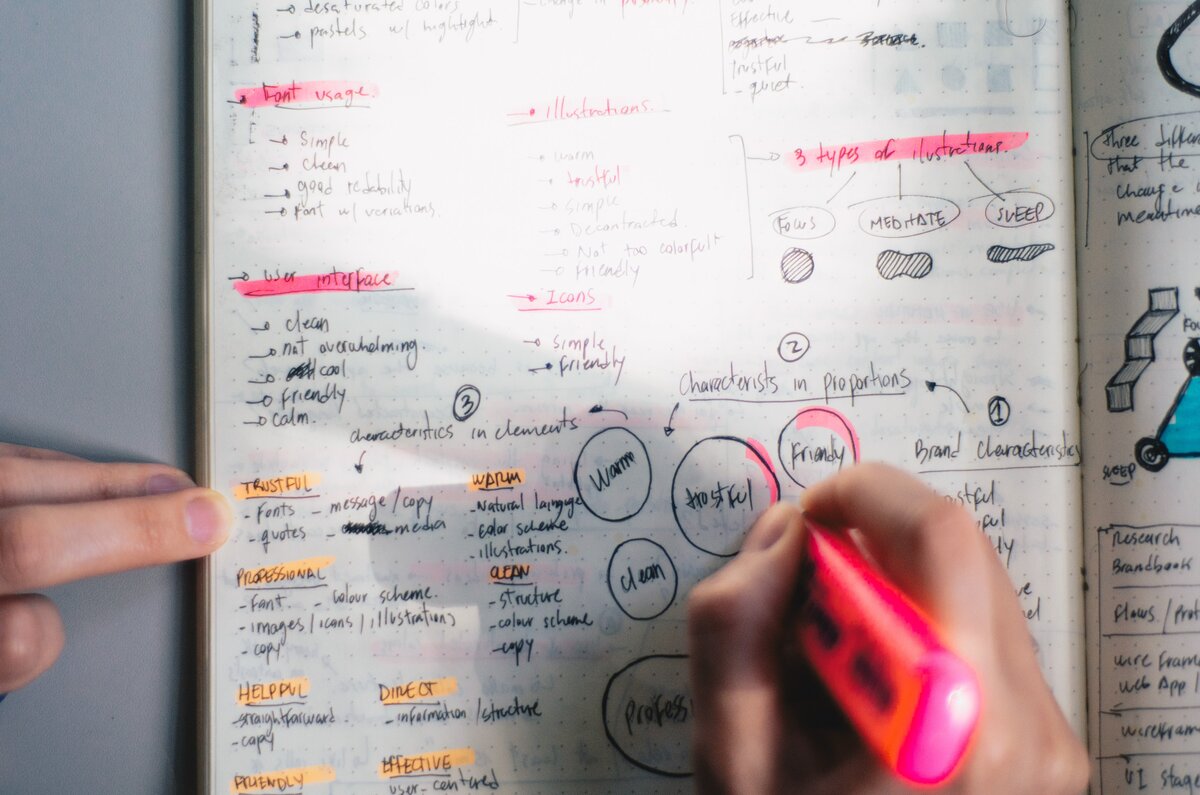 desaturated colors
pastels w/ highlight.
change in
Effective
trustful
- quiet.
Font usage.
Simple
clean
good redability
Font w/ variations.
illustrations.
warm
trustful
simple
Decontracted.
Not too colorful
Friendly
3 types of ilustrations.
Focus
MEDITATE
SLEEP
User interface
clean
not overwhelming.
cool
Friendly
calm.
Icons
simple
Friendly
2
Characterists in proportions
3
characteristics in elements
1
Brand Characteristics
Warm
trustful
Friendly
clean
TRUSTFUL
- Fonts
- message/copy
- quotes
- media
WARM
- Natural laingage
- Color scheme
- illustrations.
PROFESSIONAL
- Font.
- Colour scheme.
- images/icons/illustrations
- copy
CLEAN
- structure
- colour scheme
- copy
HELPFUL
- straightforward
- copy
DIRECT
- information/structure
FRIENDLY
EFFECTIVE
user-centered
three
that the
change
meantime
SLEEP
Research
Brandbook
flows
wire
web App /
UI